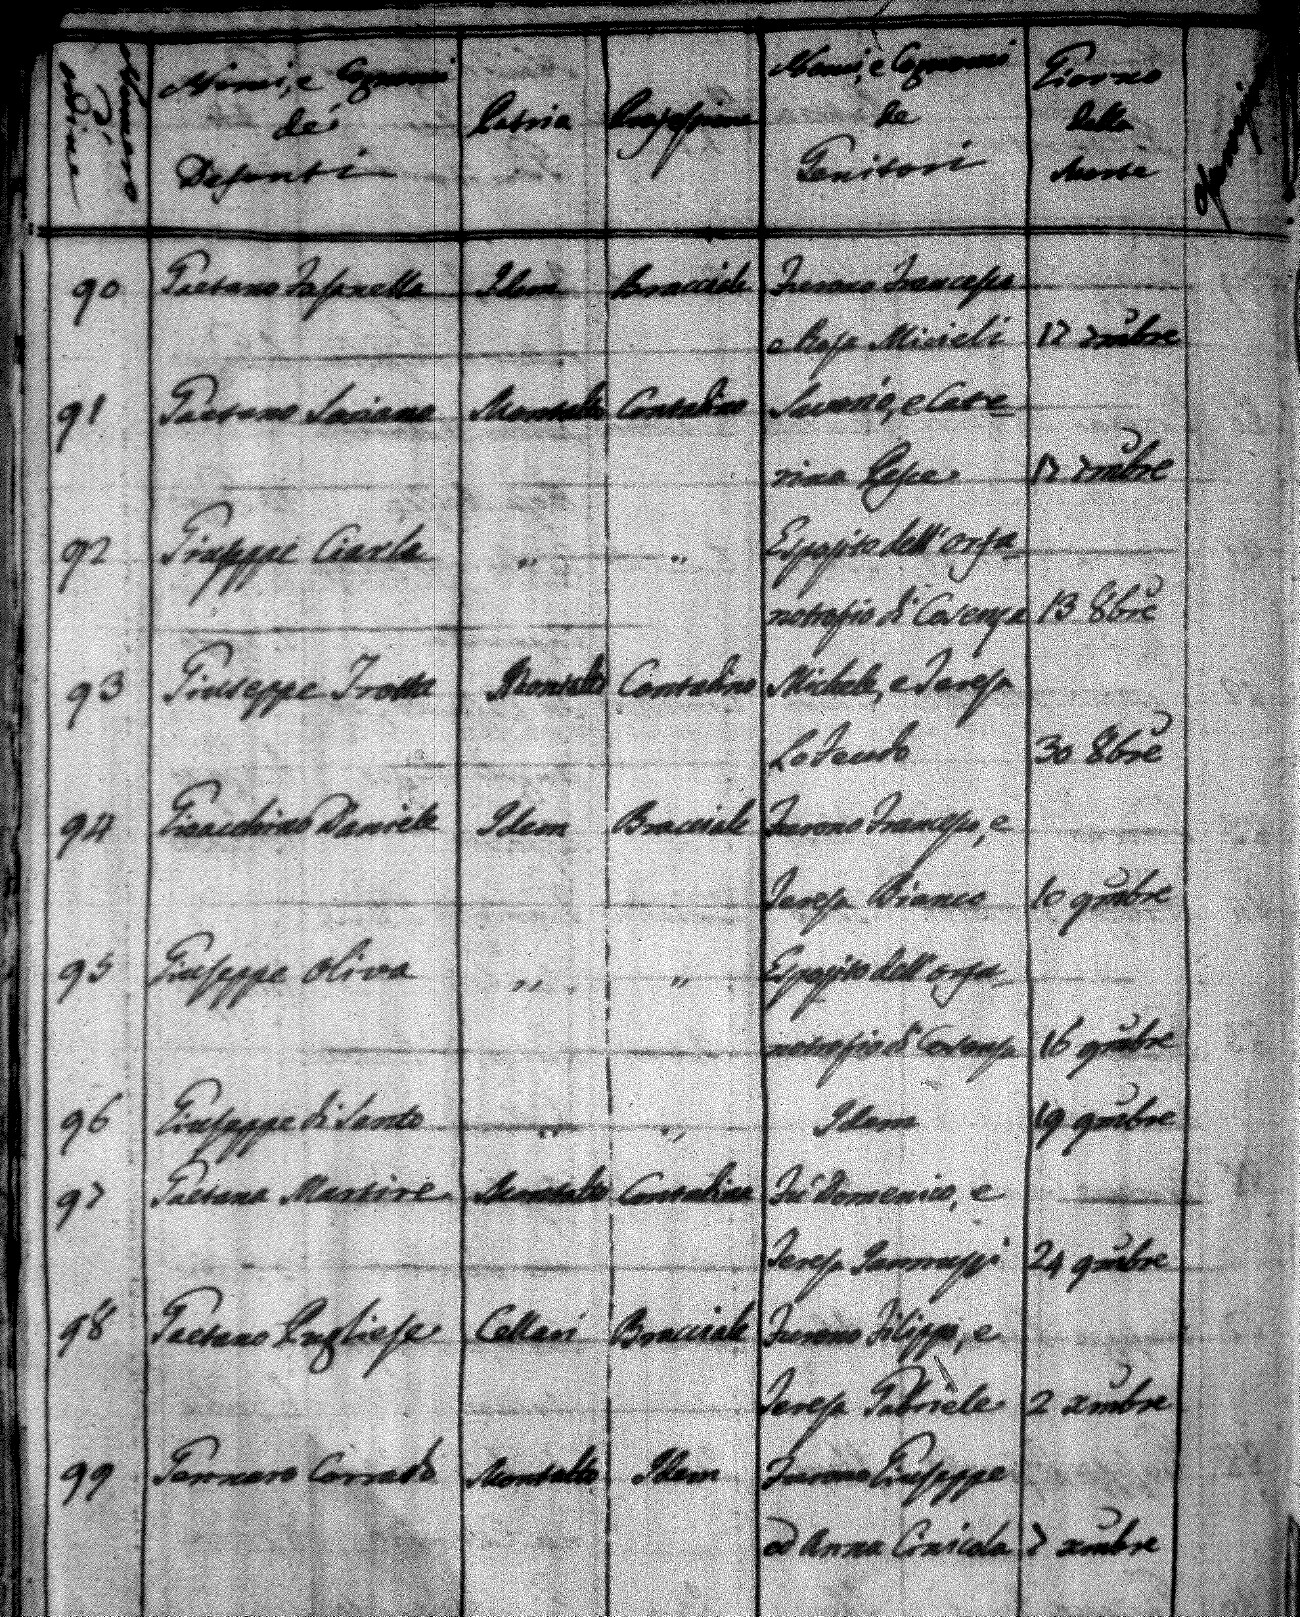 Numero d'ordine
Nomi, e Cognomi
de'
Defonti
Patria
Professione
Nomi, e Cognomi
de
Genitori
Giorno
della
morte
90 Gaetano Idem Bracciale Furono Francesco
e Rosa Micieli 17 7mbre
91 Gaetano Montalto Contadino Saverio, e Cate=
rina Pesce 17 7mbre
92 Giuseppe Ciarla " " Esposito dell'orfa=
notrofio di Cosenza 13 8bre
93 Giuseppe Trotta Montalto Contadino Michele, e Teresa
Lo Feudo 30 8bre
94 Gioacchino Daniele Idem Bracciale Furono Francesco, e
Teresa Bianco 10 9mbre
95 Giuseppe Oliva " " Esposito dell'orfa=
notrofio di Cosenza 16 9mbre
96 Giuseppe di Santo " " Idem 19 9mbre
97 Gaetana Martire Montalto Contadina Fu Domenico, e
Teresa Iannuzzi 24 9mbre
98 Gaetano Pugliese Cellari Bracciale Furono Filippo, e
Teresa Gabriele 2 xmbre
99 Gennaro Corrado Montalto Idem Furono Giuseppe
ed Anna Cnicola 7 xmbre